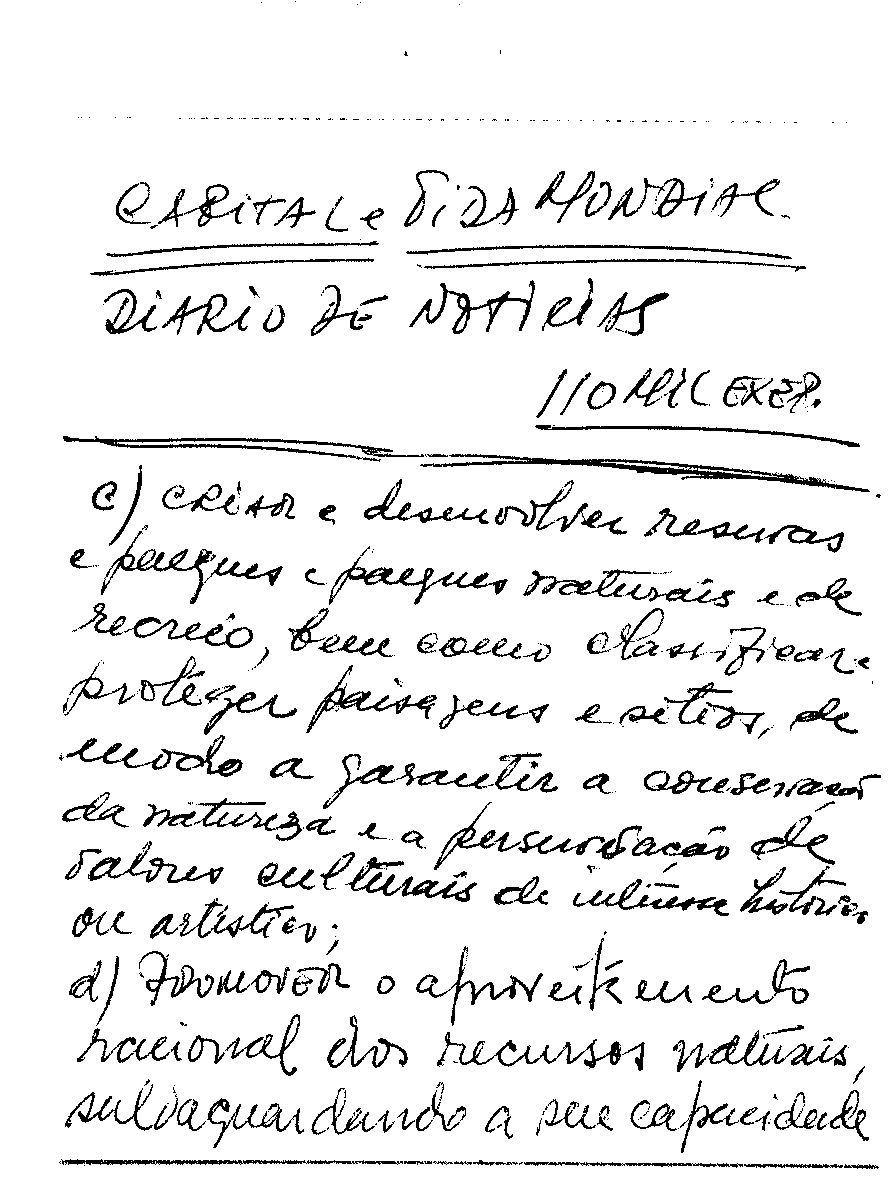 CAPITAL e VIDA MUNDIAL
DIARIO DE NOTICIAS
110 MIL EXEP.
c) CRIAR e desenvolver reservas
e parques e parques naturais e de
recreio, bem como classificar e
proteger paisagens e sitios, de
modo a garantir a conservação
da natureza e a perservação de
valores culturais de interesse historico
ou artístico;
d) PROMOVER o aproveitamento
racional dos recursos naturais,
salvaguardando a sua capacidade